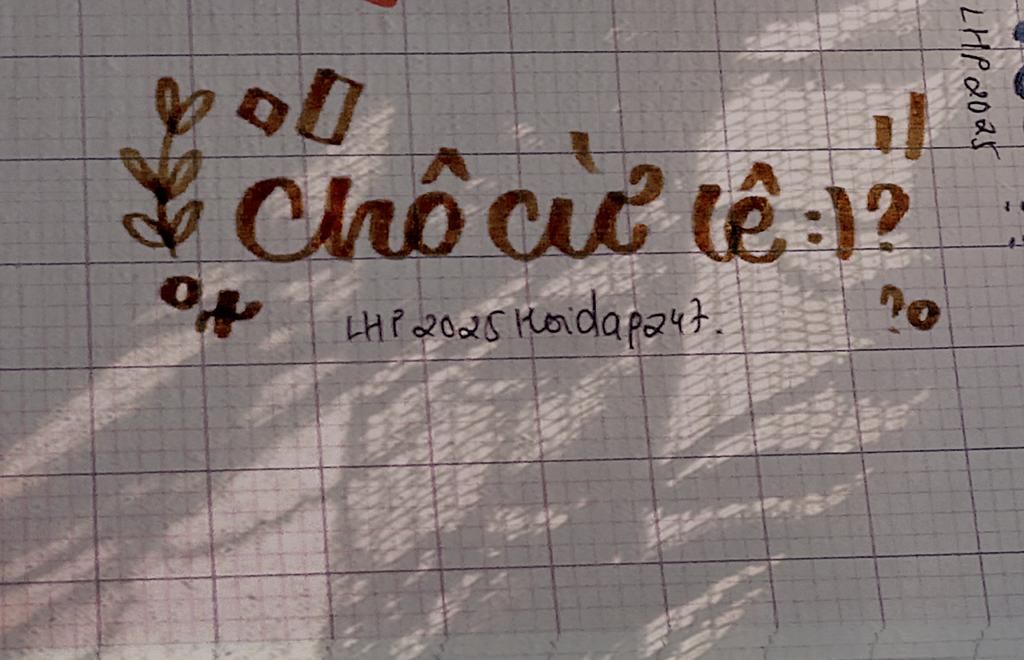 Chô cừ lê :)?
LHP2025Hoidap247.
?
LHP2025